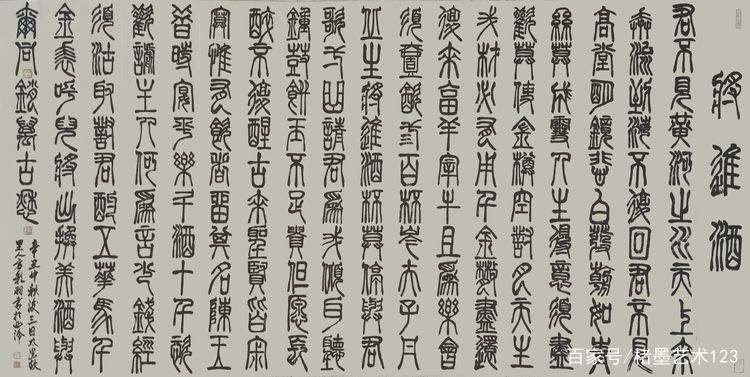 將進酒
君不見黃河之水天上來
奔流到海不復回君不見
高堂明鏡悲白髮朝如青
絲莫成雪人生得意須盡
歡莫使金樽空對月天生
我材必有用千金散盡還
復來烹羊宰牛且爲樂會
須壹飲三百杯岑夫子丹
丘生將進酒杯莫停與君
歌一曲請君爲我傾耳聽
鐘鼓饌玉不足貴但願長
醉不復醒古來聖賢皆寂
寞惟有飲者留其名陳王
昔時宴平樂斗酒十千恣
歡謔主人何爲言少錢徑
須沽取對君酌五華馬千
金裘呼兒將出換美酒與
爾同銷萬古愁
辛丑中秋後三日
里人書於西泠
百家号/楮墨艺术123